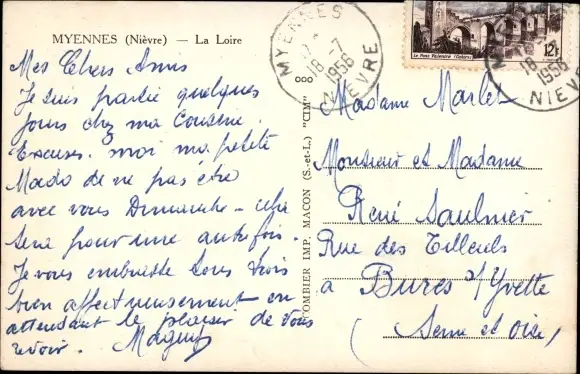 MYENNES (Nièvre) — La Loire
MYENNES
18-7
1956
NIEVRE
Le Pont Valentré (Cahors)
12F
18
1956
NIEVRE
Mes Chers Amis
Je suis partie quelques
jours chez ma Cousine.
Excusez. moi ma petite
Mado de ne pas être
avec vous Dimanche - cela
sera pour une autre fois.
Je vous embrasse tous trois
bien affectueusement en
attendant le plaisir de vous
revoir.
COMBIER IMP. MACON (S.-et-L.) "CIM"
Madame Marlet
Monsieur et Madame
René Saulnier
Rue des Tilleuls
à Bures s/Yvette
(Seine et Oise)